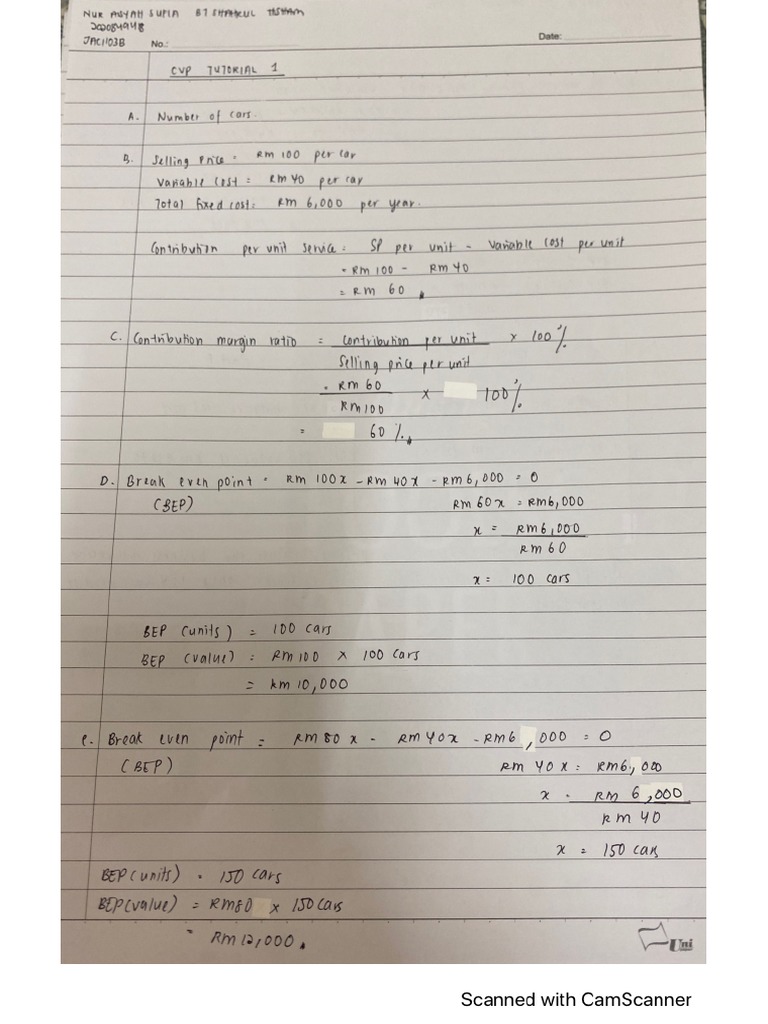 NUR AISYAH SUFIA BT SHAHRUL HISHAM
JAC1103B No.: Date:
CVP TUTORIAL 1
A. Number of cars.
B. Selling Price = RM 100 per car
Variable cost = RM 40 per car
Total fixed cost: RM 6,000 per year.
Contribution per unit service = SP per unit - Variable cost per unit
= RM 100 - RM 40
= RM 60
C. Contribution margin ratio = Contribution per unit x 100%
Selling price per unit
= RM 60 x 100%
RM 100
= 60 %
D. Break even point = RM 100x - RM 40x - RM 6,000 = 0
(BEP) RM 60x = RM6,000
x = RM6,000
RM 60
x = 100 cars
BEP (units) = 100 cars
BEP (value) = RM 100 x 100 cars
= RM 10,000
e. Break even point = RM 80x - RM 40x - RM6,000 = 0
(BEP) RM 40x = RM6,000
x = RM 6,000
RM 40
x = 150 cars
BEP (units) = 150 cars
BEP (value) = RM80 x 150 cars
= RM 12,000.
Uni
Scanned with CamScanner